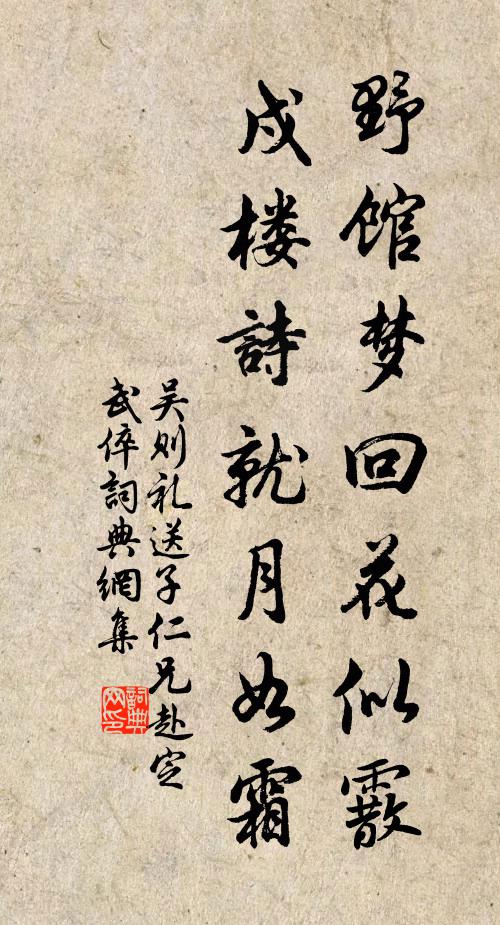 野馆梦回花似霰
戍楼詩就月如霜
吴则礼送子仁兄赴定
武倅詞典網集
詞典网印